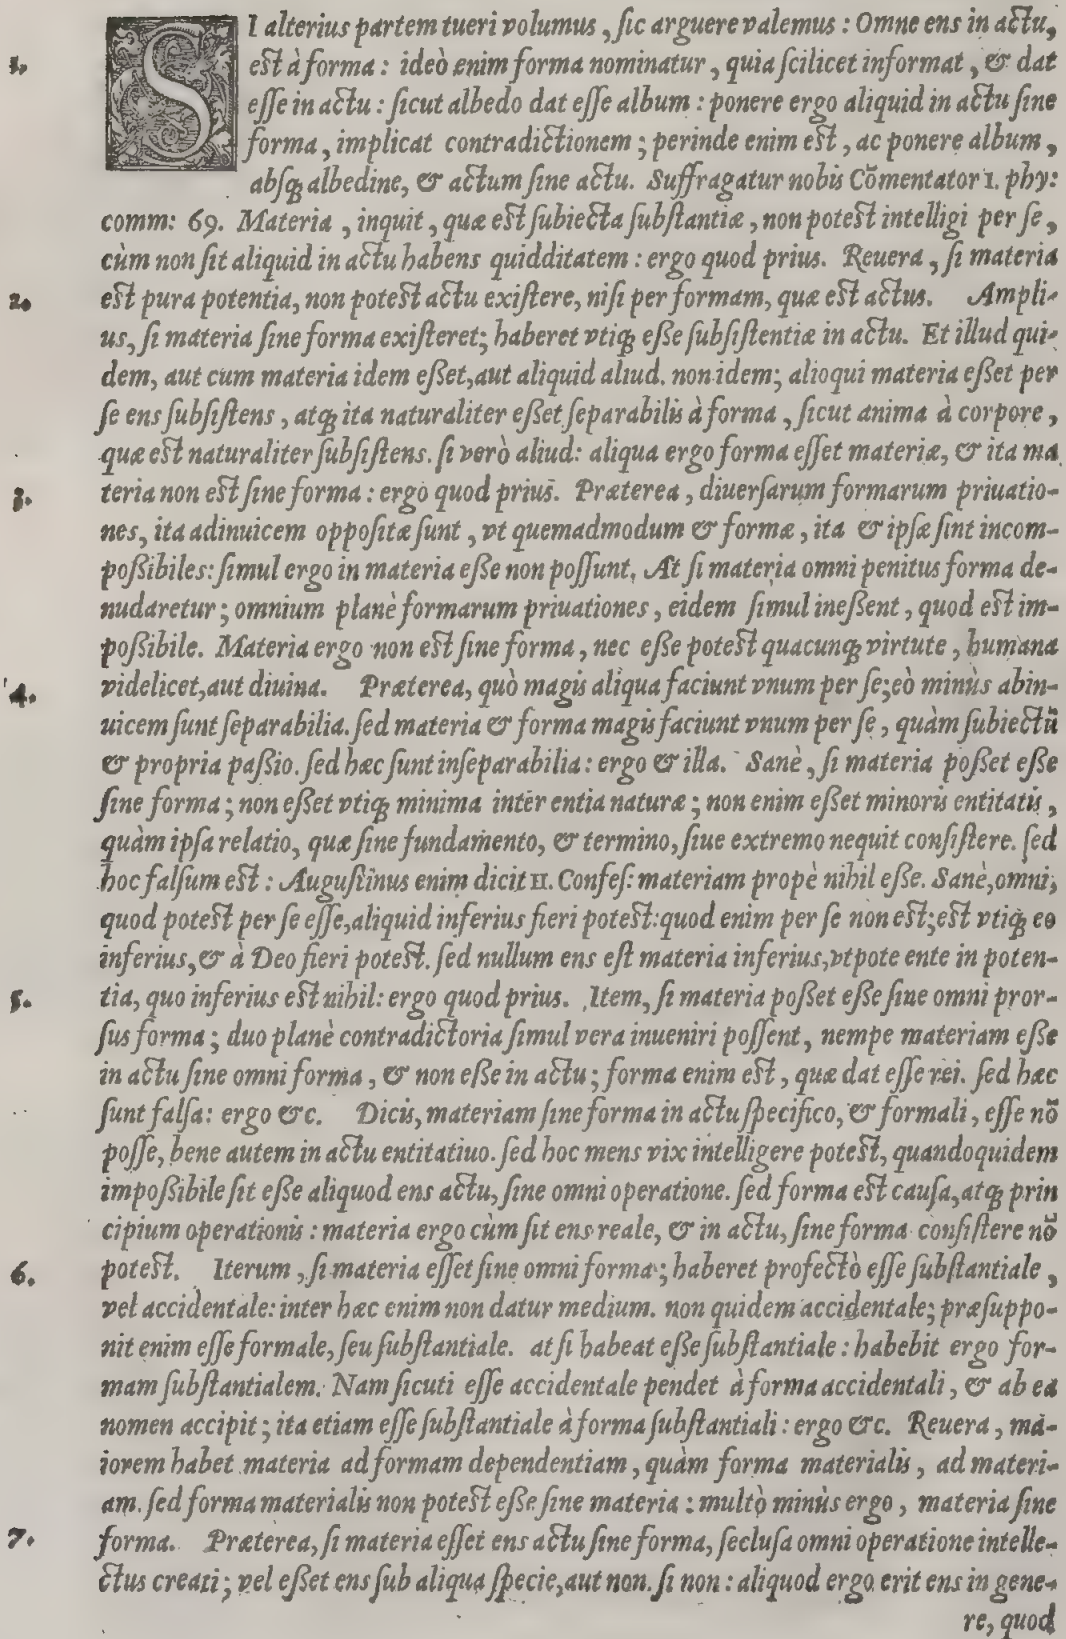 SI alterius partem tueri volumus, ſic arguere valemus: Omne ens in actu,
1. eſt à forma: ideò enim forma nominatur, quia ſcilicet informat, & dat
eſſe in actu: ſicut albedo dat eſſe album: ponere ergo aliquid in actu ſine
forma, implicat contradictionem; perinde enim eſt, ac ponere album,
abſq; albedine, & actum ſine actu. Suffragatur nobis Cōmentator 1. phy:
comm: 69. Materia, inquit, quæ eſt ſubiecta ſubſtantiæ, non poteſt intelligi per ſe,
cùm non ſit aliquid in actu habens quidditatem: ergo quod prius. Reuera, ſi materia
2. eſt pura potentia, non poteſt actu exiſtere, niſi per formam, quæ eſt actus. Ampli-
us, ſi materia ſine forma exiſteret; haberet vtiq; eſſe ſubſiſtentiæ in actu. Et illud qui-
dem, aut cum materia idem eßet, aut aliquid aliud. non idem; alioqui materia eßet per
ſe ens ſubſiſtens, atq; ita naturaliter eßet ſeparabilis à forma, ſicut anima à corpore,
quæ eſt naturaliter ſubſiſtens. ſi verò aliud: aliqua ergo forma eſſet materiæ, & ita ma
3. teria non eſt ſine forma: ergo quod prius. Præterea, diuerſarum formarum priuatio-
nes, ita adinuicem oppoſitæ ſunt, vt quemadmodum & formæ, ita & ipſæ ſint incom-
poßibiles: ſimul ergo in materia eſſe non poſſunt. At ſi materia omni penitus forma de-
nudaretur; omnium planè formarum priuationes, eidem ſimul ineßent, quod eſt im-
poßibile. Materia ergo non eſt ſine forma, nec eſſe poteſt quacunq; virtute, humana
4. videlicet, aut diuina. Præterea, quò magis aliqua faciunt vnum per ſe; eò minùs abin-
uicem ſunt ſeparabilia. ſed materia & forma magis faciunt vnum per ſe, quàm ſubiectū
& propria paßio. ſed hæc ſunt inſeparabilia: ergo & illa. Sanè, ſi materia poßet eſſe
ſine forma; non eßet vtiq; minima inter entia naturæ; non enim eßet minoris entitatis,
quàm ipſa relatio, quæ ſine fundamento, & termino, ſiue extremo nequit conſiſtere. ſed
hoc falſum eſt: Auguſtinus enim dicit II. Confeſ: materiam propè nihil eſſe. Sanè, omni,
quod poteſt per ſe eſſe, aliquid inferius fieri poteſt: quod enim per ſe non eſt; eſt vtiq; eo
inferius, & à Deo fieri poteſt. ſed nullum ens eſt materia inferius, vtpote ente in poten-
5. tia, quo inferius eſt nihil: ergo quod prius. Item, ſi materia poßet eſſe ſine omni pror-
ſus forma; duo planè contradictoria ſimul vera inueniri poſſent, nempe materiam eſſe
in actu ſine omni forma, & non eſſe in actu; forma enim eſt, quæ dat eſſe rei. ſed hæc
ſunt falſa: ergo &c. Dicis, materiam ſine forma in actu ſpecifico, & formali, eſſe nō
poſſe, bene autem in actu entitatiuo. ſed hoc mens vix intelligere poteſt, quandoquidem
impoßibile ſit eſſe aliquod ens actu, ſine omni operatione. ſed forma eſt cauſa, atq; prin
cipium operationis: materia ergo cùm ſit ens reale, & in actu, ſine forma conſiſtere nō
6. poteſt. Iterum, ſi materia eſſet ſine omni forma; haberet profectò eſſe ſubſtantiale,
vel accidentale: inter hæc enim non datur medium. non quidem accidentale; præſuppo-
nit enim eſſe formale, ſeu ſubſtantiale. at ſi habeat eſſe ſubſtantiale: habebit ergo for-
mam ſubſtantialem. Nam ſicuti eſſe accidentale pendet à forma accidentali, & ab ea
nomen accipit; ita etiam eſſe ſubſtantiale à forma ſubſtantiali: ergo &c. Reuera, ma-
iorem habet materia ad formam dependentiam, quàm forma materialis, ad materi-
am. ſed forma materialis non poteſt eſſe ſine materia: multò minùs ergo, materia ſine
7. forma. Præterea, ſi materia eſſet ens actu ſine forma, ſecluſa omni operatione intelle-
ctus creati; vel eßet ens ſub aliqua ſpecie, aut non. ſi non: aliquod ergo erit ens in gene-
re, quod